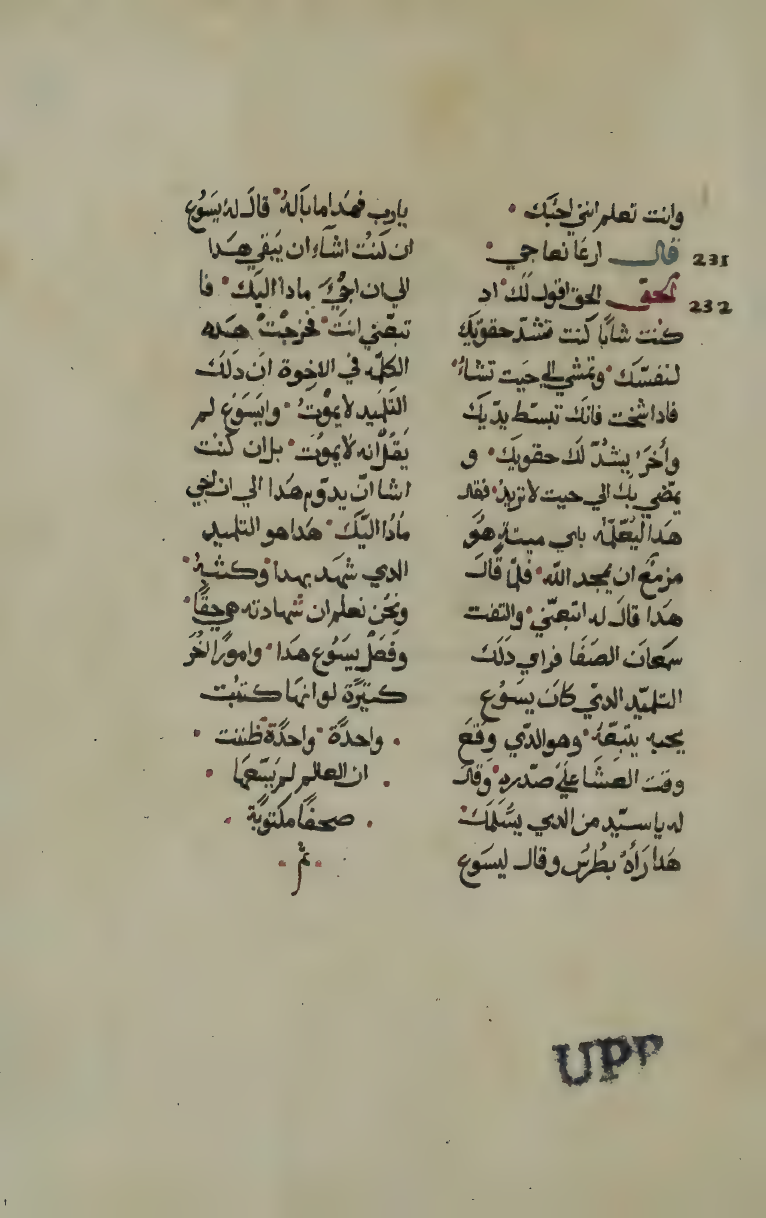 وانت تعلم انني احبك
231 قال ارعا نعاجي
232 الحق الحق اقول لك اد
كنت شابا كنت تشد حقويك
لنفسك وتمشي الي حيت تشاء
فادا شخت فانك تبسط يديك
وأخر يشد لك حقويك و
يمضي بك الي حيت لا تريد فقال
هدا ليعلمه باي ميتة هو
مزمع ان يمجد الله فلما قال
هدا قال له اتبعني والتفت
سمعان الصفا فراي دلك
التلميد الدي كان يسوع
يحبه يتبعه وهو الدي وقع
وقت العشا علي صدره وقال
له يا سيد من الدي يسلمك
هدا رأه بطرس وقال ليسوع
يارب فهدا ما باله قال له يسوع
ان كنت اشاء ان يبقي هدا
الي ان اجي مادا اليك فا
تبعني انت فخرجت هده
الكلمه في الاخوة ان دلك
التلميد لا يموت وايسوع لم
يقل انه لا يموت بل ان كنت
اشا ان يدوم هدا الي ان اجي
مادا اليك هدا هو التلميد
الدي شهد بهدا وكتبه
ونحن نعلم ان شهادته هي حقا
وفعل يسوع هدا وامورا اخر
كتيرة لو انها كتبت
واحدة واحدة ظننت
ان العالم لم يسعها
صحفا مكتوبة
تم
UPP